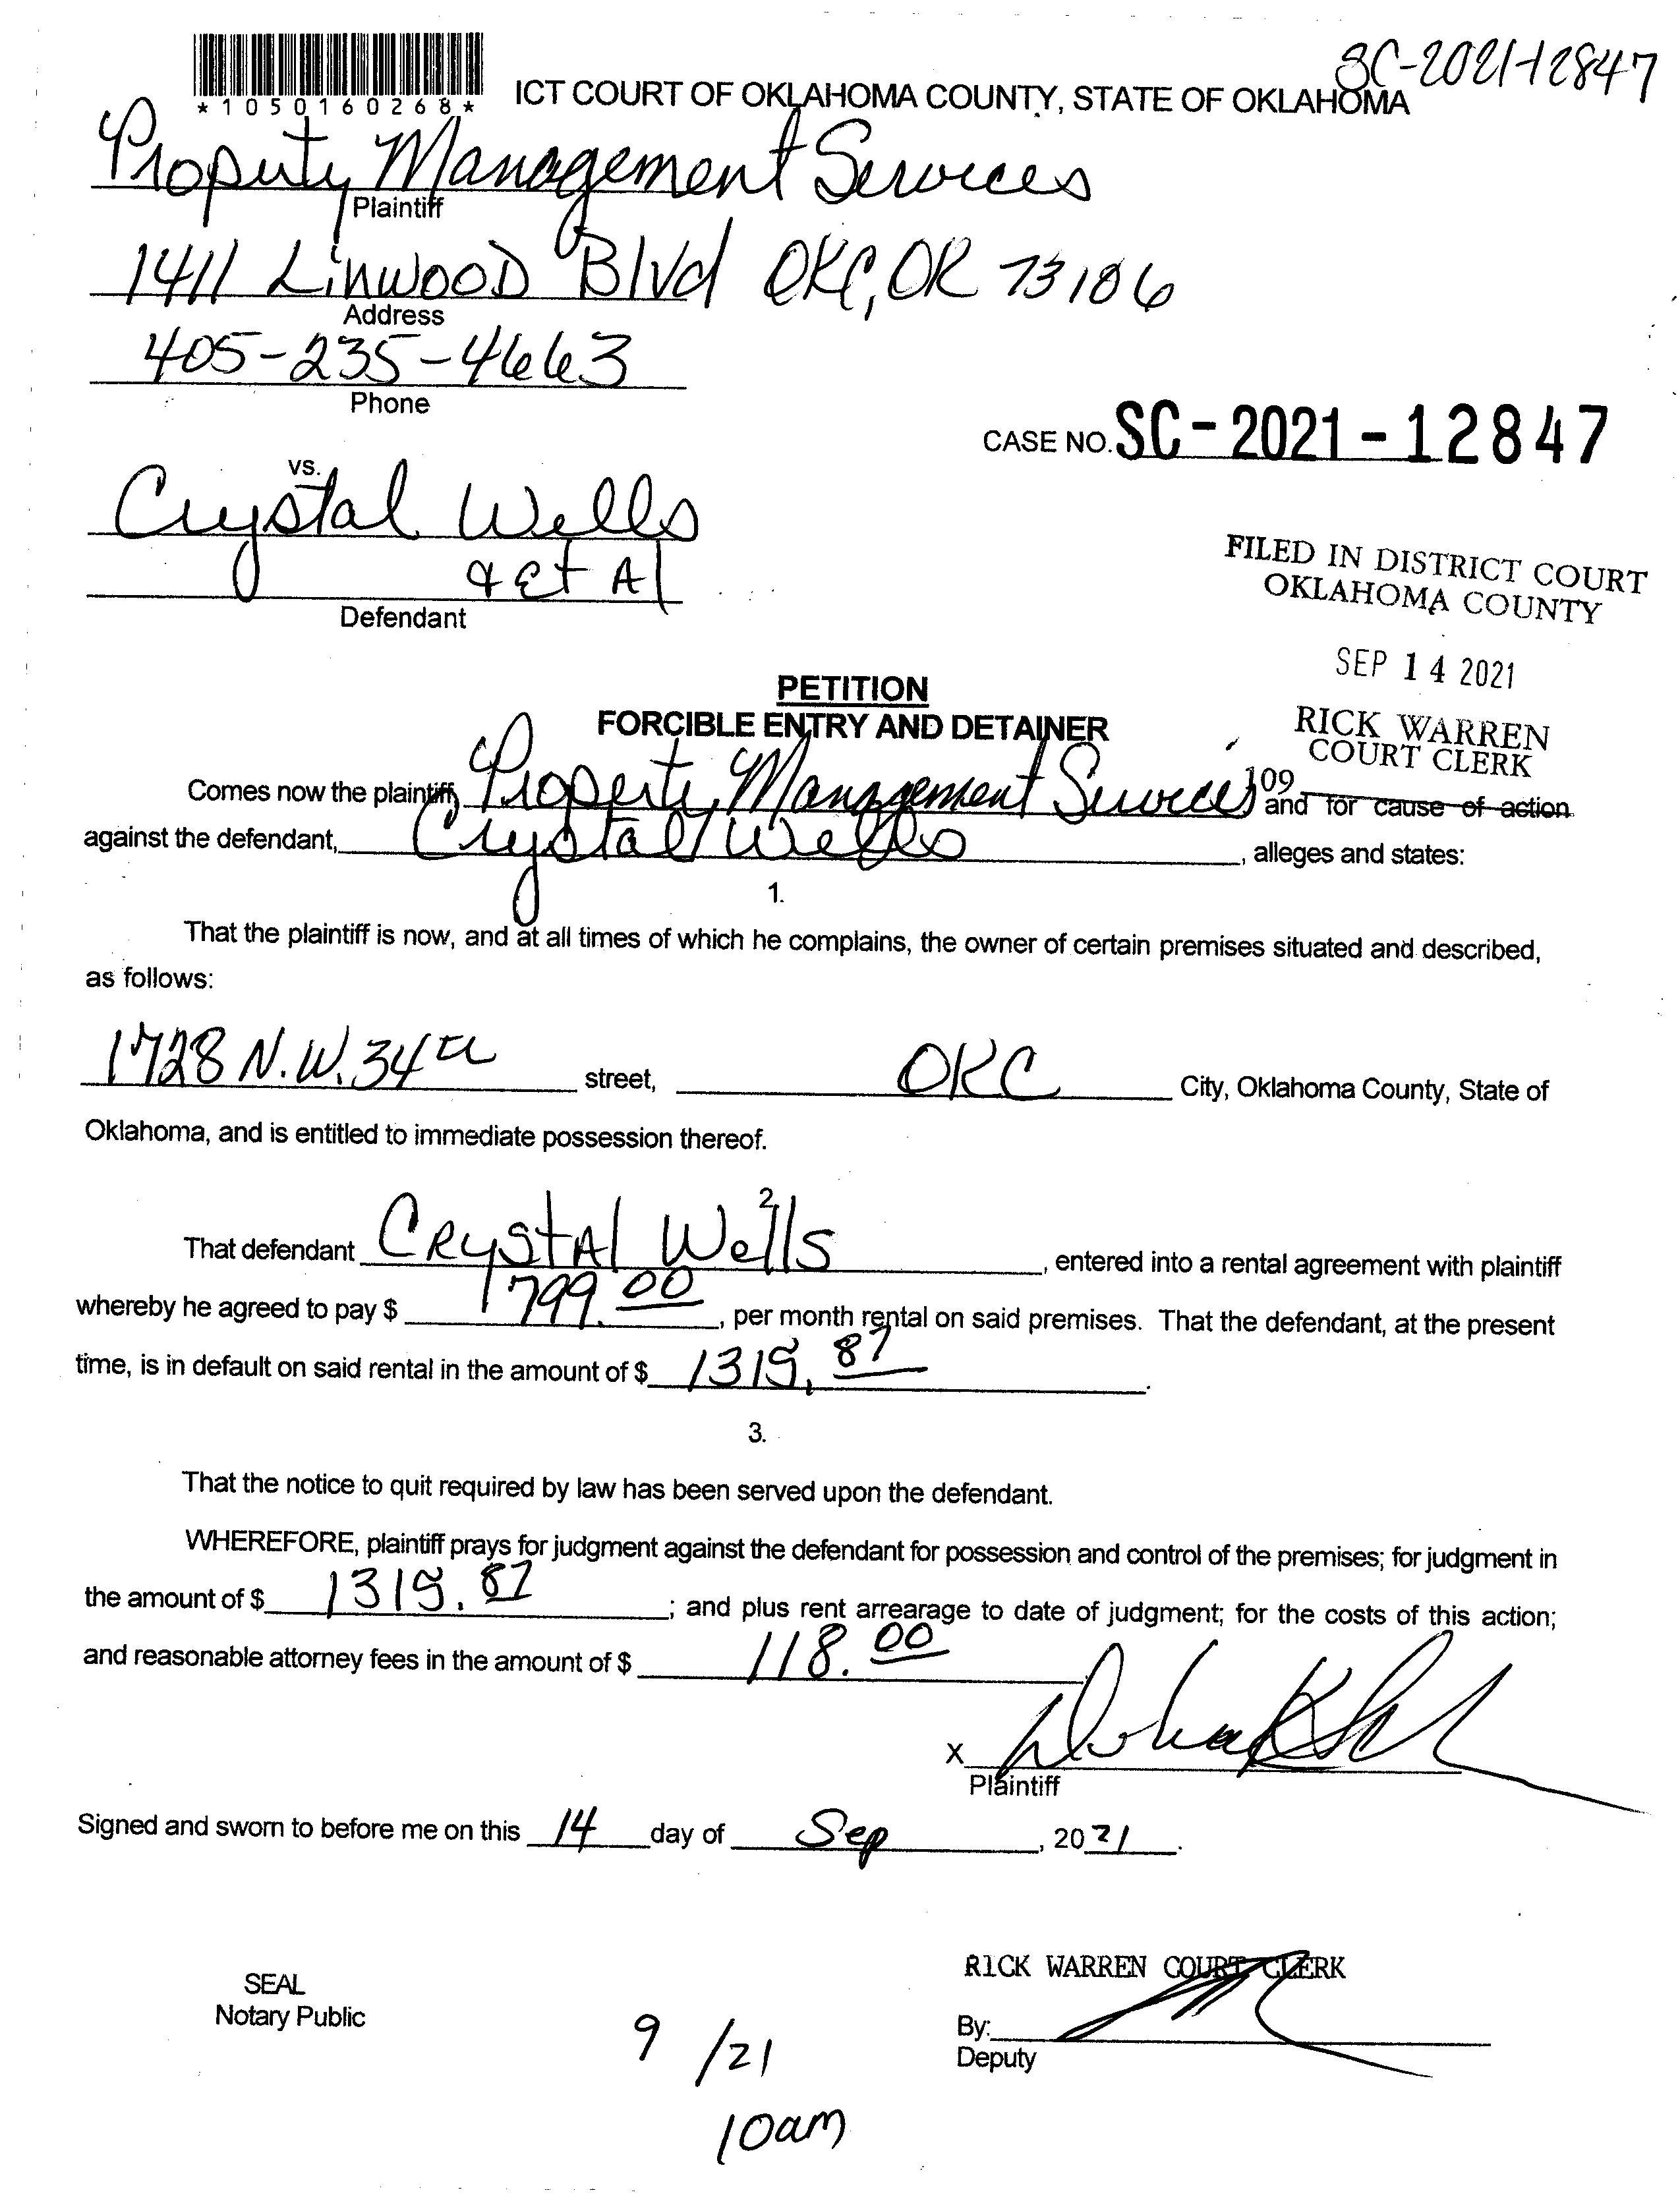 SC-2021-12847
*1050160268*
ICT COURT OF OKLAHOMA COUNTY, STATE OF OKLAHOMA
Property Management Services
Plaintiff
1411 Linwood Blvd OKC, OK 73106
Address
405-235-4663
Phone
CASE NO. SC-2021-12847
vs.
Crystal Wells
& Et Al
Defendant
FILED IN DISTRICT COURT
OKLAHOMA COUNTY
SEP 14 2021
RICK WARREN
COURT CLERK
109
PETITION
FORCIBLE ENTRY AND DETAINER
Comes now the plaintiff, Property Management Services and for cause of action
against the defendant, Crystal Wells, alleges and states:
1.
That the plaintiff is now, and at all times of which he complains, the owner of certain premises situated and described,
as follows:
1728 N.W. 34th street, OKC City, Oklahoma County, State of
Oklahoma, and is entitled to immediate possession thereof.
2.
That defendant Crystal Wells, entered into a rental agreement with plaintiff
whereby he agreed to pay $ 799.00, per month rental on said premises. That the defendant, at the present
time, is in default on said rental in the amount of $
3.
That the notice to quit required by law has been served upon the defendant.
WHEREFORE, plaintiff prays for judgment against the defendant for possession and control of the premises; for judgment in
the amount of $ ; and plus rent arrearage to date of judgment; for the costs of this action;
and reasonable attorney fees in the amount of $ 118.00
X
Plaintiff
Signed and sworn to before me on this 14 day of Sep, 2021.
RICK WARREN COURT CLERK
SEAL
Notary Public
By:
Deputy
9/21
10am